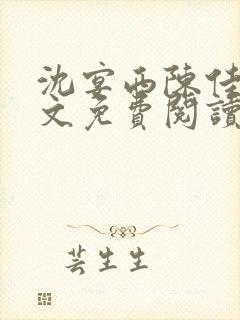 沈宴西陳佳
文免費閱讀
芸生生